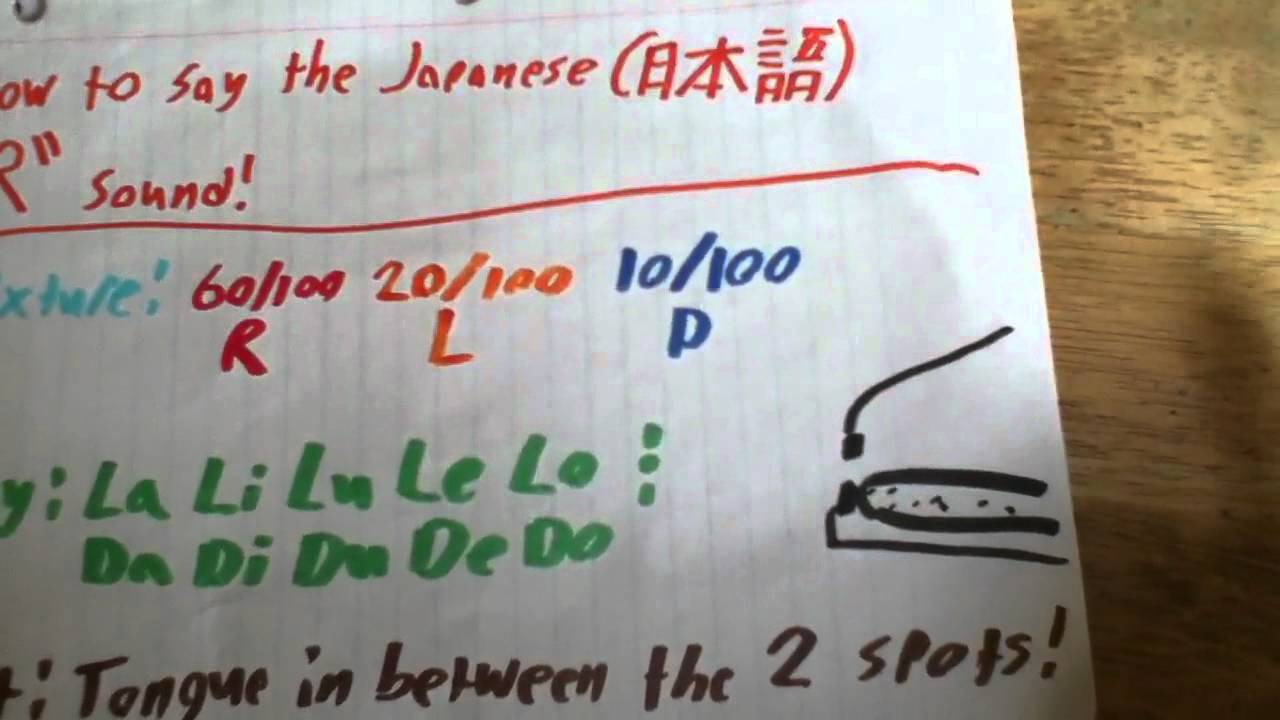 ow to say the Japanese (日本語)
R" Sound!
xture! 60/100 20/100 10/100
R L D
y: La Li Lu Le Lo
Da Di Du De Do
t: Tongue in between the 2 spots!